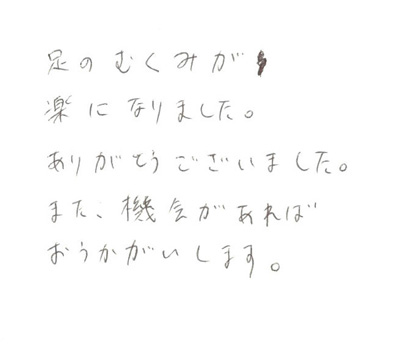 足のむくみが
楽になりました。
ありがとうございました。
また機会があれば
おうかがいします。